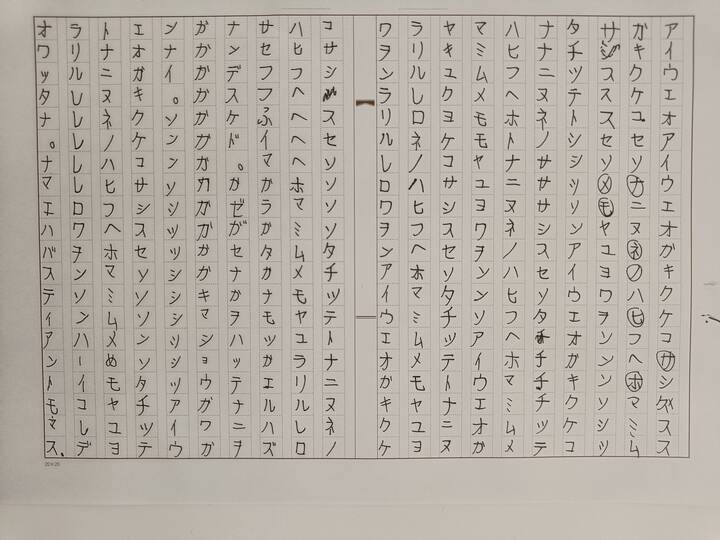 アイウエオアイウエオガキクケコサシスス
ガキクケコセソナニヌネノハヒフヘホマミム
サジスススセソメモヤユヨワヲンンンソシツ
タチツテトシシツソンアイウエオガキクケコ
ナナニヌネノサササシスセソタチチチチツテ
ハヒフヘホトナニヌネノハヒフヘホマミムメ
マミムメモモヤユヨワヲンンソアイウエオか
ヤキユクヨケコサシスセソタチツテトナニヌ
ラリルレロネノハヒフヘホマミムメモヤユヨ
ワヲンラリルレロワヲンアイウエオガキクケ
コサシスセソソソソタチツテトナニヌネノ
ハヒフヘヘヘヘホマミムメモヤユラリルレロ
サセフフふイマガラガタカナモツガエルハズ
ナンデスケド。かゼがセナかヲハッテナニヲ
ガガガガガガカガガカガガキマショウガワガ
ンナイ。ソンンソシツツシシシツシツアイウ
エオガキクケコサシスセソソソンソタチツテ
トナニヌネノハヒフヘホマミムメめモヤユヨ
ラリルレレレレレロワヲンソンハーイコレデ
オワッタナ。ナマエハバスティアントモマス、
20×20